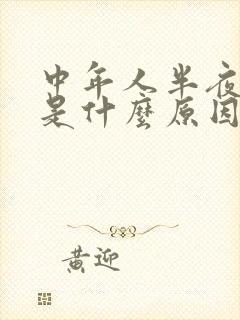 中年人半夜
是什麼原因
黃迎